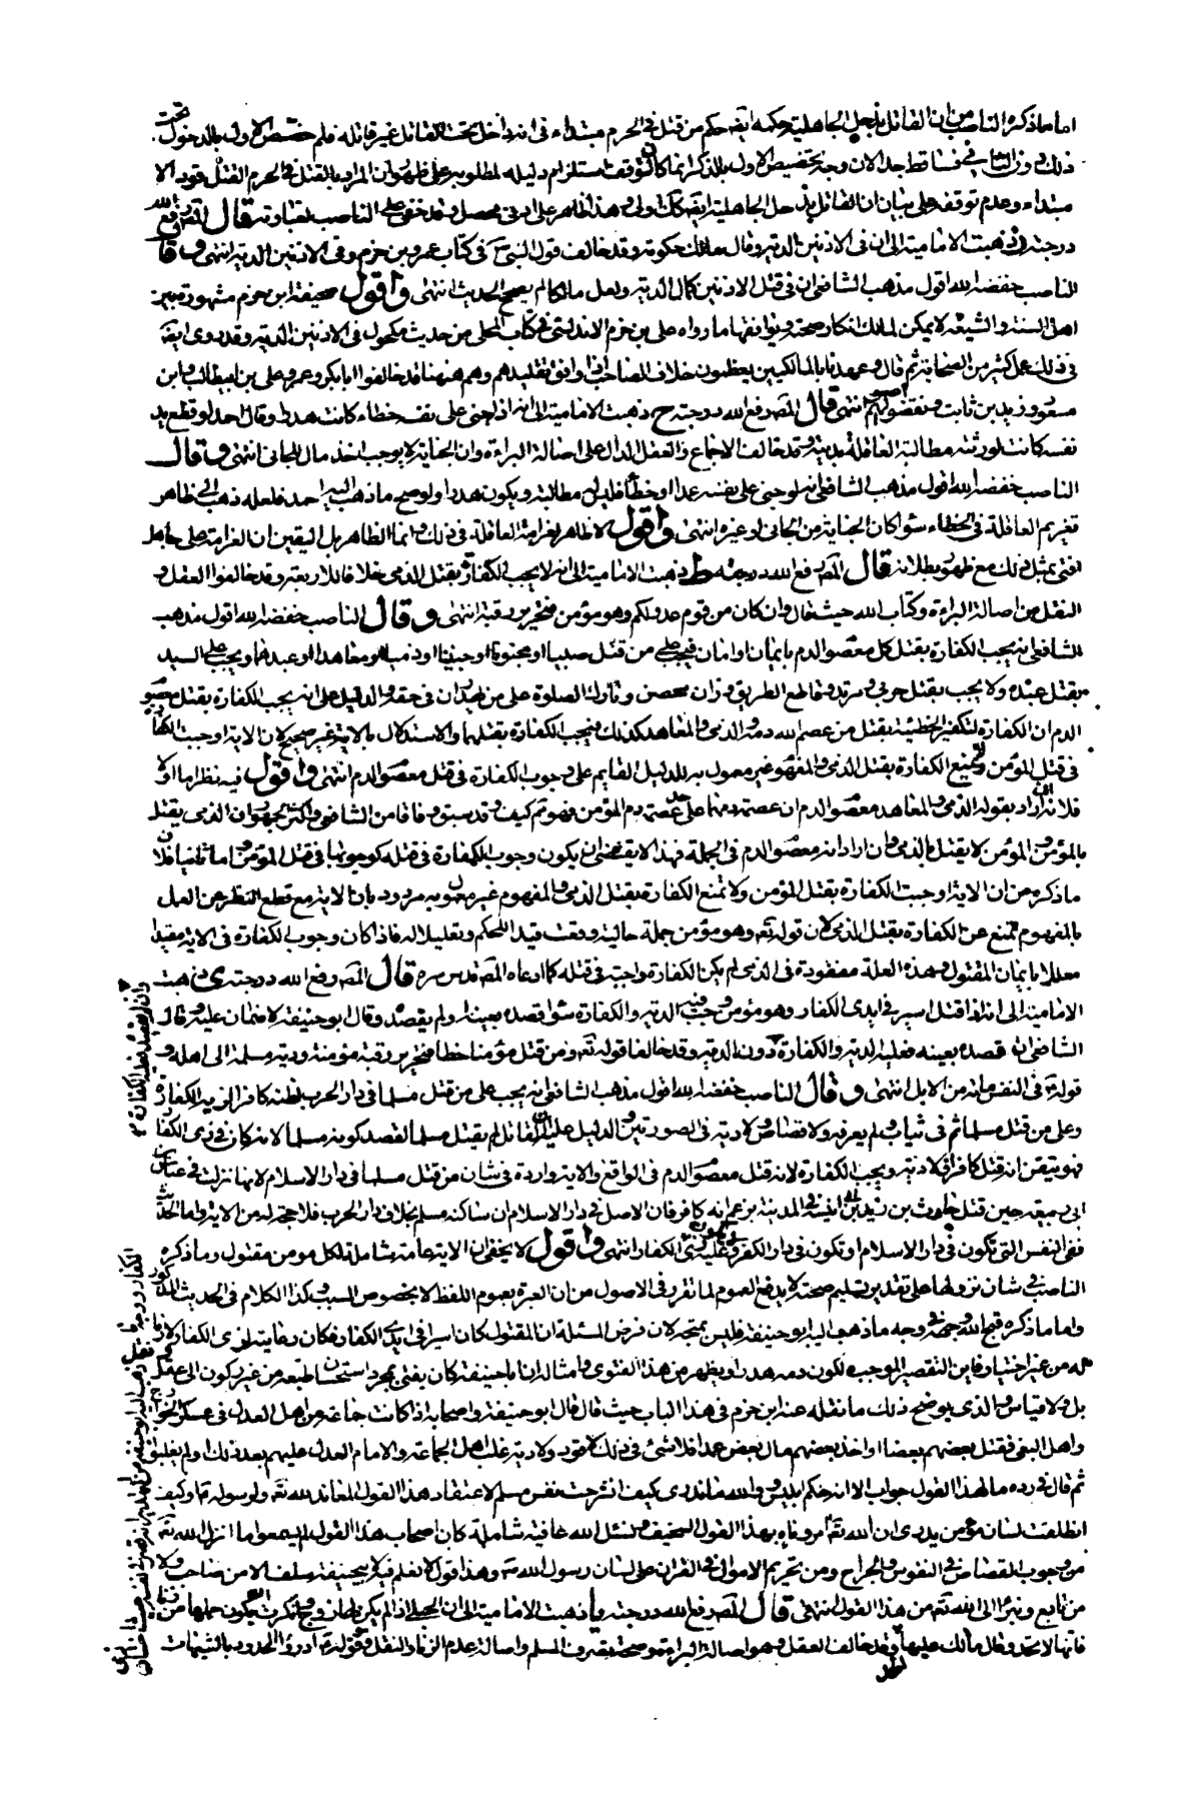 اما ما ذكره الناصب من ان القاتل بذحل الجاهلية حكمه ايضا حكم من قتل في الحرم مبتداء في انه داخل تحت القاتل غير قاتله فلم خصص الاول بالدخول تحت
ذلك دون الثاني فساقط جدا لان وجه تخصيص الاول بالذكر انما كان لتوقف استلزام دليله لمطلوبه على ظهور ان المراد بالقتل في الحرم القتل قود الا
مبتداء وعدم توقفه على بيان ان القاتل بذحل الجاهلية ايضا كك ولى وهذا ظاهر على ادنى محصل وقد خفى على الناصب لغباوته قال المصنف رفع الله
درجته ز ذهبت الامامية الى ان في الاذنين الدية وقال مالك حكومة وقد خالف قول النبي ص في كتاب عمرو بن حزم وفي الاذنين الدية انتهى وقال
الناصب خفضه الله اقول مذهب الشافعي ان في قتل الاذنين كمال الدية ولعل مالكا لم يصح الحديث انتهى واقول صحيفة ابن حزم مشهورة بين
اهل السنة والشيعة لا يمكن لمالك انكار صحته ويوافقها ما رواه علي بن حزم الاندلسي في كتاب المحلى من حديث مكحول في الاذنين الدية وقد روى ايضا
في ذلك عمل كثير من الصحابة ثم قال وعهدنا بالمالكيين يعظمون خلاف الصاحب اذا وافق تقليدهم وهم ههنا قد خالفوا ابا بكر وعمر وعلي بن ابيطالب وابن
مسعود وزيد بن ثابت ونقضوا اصولهم انتهى قال المصنف رفع الله درجته ح ذهبت الامامية الى انه اذا جنى على نفسه خطاء كانت هدرا وقال احمد لو قطع يد
نفسه كانت لورثته مطالبة العاقلة بديته وقد خالف الاجماع والعقل الدال على اصالة البراءة وان الجناية لا يوجب اخذ مال للجاني انتهى وقال
الناصب خفضه الله اقول مذهب الشافعي انه لو جنى على نفسه عمدا او خطأ فليس له مطالبة ويكون هدرا ولو صح ما ذهب اليه احمد فلعله ذهب الى ظاهر
تغريم العاقلة في الخطاء سوا كان الجناية من الجاني او غيره انتهى واقول لا ظاهر لغرامة العاقلة في ذلك وانما الظاهر بل اليقين ان الغرامة على جاهل
افتى بمثل ذلك مع ظهور بطلانه قال المصنف رفع الله درجته ط ذهبت الامامية الى انه لا يجب الكفارة بقتل الذمي خلافا للاربعة وقد خالفوا العقل و
النقل من اصالة البراءة وكتاب الله حيث قال وان كان من قوم عدو لكم وهو مؤمن فتحرير رقبة انتهى وقال الناصب خفضه الله اقول مذهب
الشافعي انه يجب الكفارة بقتل كل معصوم الدم بايمان او امان فيجب على من قتل صبيا او مجنونا او جنينا او ذميا او معاهدا او عبدا ويجب على السيد
بقتل عبده ولا يجب بقتل حربي ومرتد وقاطع الطريق وزان محصن وتارك الصلوة على من يهدران في حقه والدليل على انه يجب الكفارة بقتل معصوم
الدم ان الكفارة لتكفير الخطيئة بقتل من عصم الله دمه والذمي والمعاهد كذلك فيجب الكفارة بقتلهما والاستدلال بالاية غير صحيح لان الاية اوجبت الكفارة
في قتل المؤمن ولا تمنع الكفارة بقتل الذمي والمفهوم غير معمول به للدليل القايم على وجوب الكفارة في قتل معصوم الدم انتهى واقول فيه نظر اما اولا
فلانه ان اراد بقوله الذمي والمعاهد معصوم الدم ان عصمة دمهما على حد عصمة دم المؤمن فهو تم كيف وقد سبق وفاقا من الشافعي واكثر الجمهور ان الذمي يقتل
بالمؤمن والمؤمن لا يقتل بالذمي وان اراد انه معصوم الدم في الجملة فهذا لا يقتضي ان يكون وجوب الكفارة في قتله كوجوبها في قتل المؤمن واما ثانيا فلان
ما ذكره من ان الاية اوجبت الكفارة بقتل المؤمن ولا تمنع الكفارة بقتل الذمي والمفهوم غير معمول به مردود بان الاية مع قطع النظر من العمل
بالمفهوم تمنع عن الكفارة بقتل الذمي لان قوله تعالى وهو مؤمن جملة حالية وقعت قيدا للحكم وتعليلا له فاذا كان وجوب الكفارة في الاية مقيدا
معللا بايمان المقتول وهذه العلة مفقودة في الذمي لم يكن الكفارة واجبة في قتله كما ادعاه المصنف قدس سره قال المصنف رفع الله درجته ى ذهبت
الامامية الى انه اذا قتل اسير في ايدى الكفار وهو مؤمن وجب فيه الدية والكفارة سوا قصده بعينه او لم يقصده وقال ابو حنيفة لا ضمان عليه وقال
الشافعي ان قصده بعينه فعليه الدية والكفارة دون الدية وقد خالفا قوله تعالى ومن قتل مؤمنا خطا فتحرير رقبة مؤمنة ودية مسلمة الى اهله و
قوله ع في النفس مائة من الابل انتهى وقال الناصب خفضه الله اقول مذهب الشافعي انه يجب على من قتل مسلما في دار الحرب بظنه كافرا لزيه الكفارة
وعلى من قتل مسلما ثم في ثياب ولم يعرفه ولا قصاص ولا دية في الصورتين والدليل عليه ان القاتل لم يقتل مسلما لقصد كونه مسلما لانه كان في زى الكفار
فهو تيقن انه قتل كافرا فلا دية ويجب الكفارة لانه قتل معصوم الدم في الواقع والاية واردة في شان من قتل مسلما في دار الاسلام لانها نزلت في عياش بن
ابي ربيعة حين قتل حارث بن زيد بن ابي انيسة في المدينة بزعم انه كافر فان الاصل في دار الاسلام ان ساكنه مسلم بخلاف دار الحرب فلا حجة له من الاية واما الحديث
ففي النفس التي تكون في دار الاسلام او تكون في دار الكفر وعليه زى الكفار انتهى واقول لا يخفى ان الاية عامة شاملة لكل مومن مقتول وما ذكره
الناصب في شان نزولها على تقدير تسليم صحته لا يدفع العموم لما تقرر في الاصول من ان العبرة بعموم اللفظ لا بخصوص السبب وكذا الكلام في الحديث المذكور
واما ما ذكره قبح الله وجهه في وجه ما ذهب اليه ابو حنيفة فليس بمتجه لان فرض المسئلة ان المقتول كان اسيرا في ايدى الكفار فكان رعايته لزى الكفار لازما
له من غير اختيار فاين التقصير الموجب لكون دمه هدرا ويظهر من هذا الفتوى وامثاله ان ابا حنيفة كان يفتى بمجرد استحسان طبعه من غير ركون الى عقل
بل ولا قياس والذى يوضح ذلك ما نقله عنه ابن حزم في هذا الباب حيث قال قال ابو حنيفة واصحابه اذا كانت جماعة من اهل العدل في عسكر الخوارج
واهل البغى فقتل بعضهم بعضا او اخذ بعضهم مال بعض عمدا فلا شئ في ذلك لا قود ولا دية غلب اهل الجماعة والامام العدل عليهم بعد ذلك او لم يغلبوا
ثم قال في رده ما لهذا القول جواب الا انه حكم ابليس والله ما ندرى كيف انشرحت نفس مسلم لاعتقاد هذا القول المعاند لله تعالى ولرسوله ام كيف
انطلقت لسان مؤمن يدرى ان الله تعالى امره فاه بهذا القول السخيف ونسئل الله عافية شاملة كان اصحاب هذا القول لم يسمعوا ما انزل الله تعالى
من وجوب القصاص في النفوس والجراح ومن تحريم الاموال في القران على لسان رسول الله ص وهذا قول لا نعلم فيه لابيحنيفة سلفا لا من صاحب ولا
من تابع ونبرأ الى الله تعالى من هذا القول انتهى قال المصنف رفع الله درجته يا ذهبت الامامية الى ان الحبلى اذا لم يكن لها زوج وانكرت ان يكون حملها من زنا
فانها لا تحد وقال مالك عليها الحد وقد خالف العقل وهو اصالة البراءة وصحة تصرف المسلم واصالة عدم الزنا والنقل وهو قوله ع ادرؤا الحدود بالشبهات